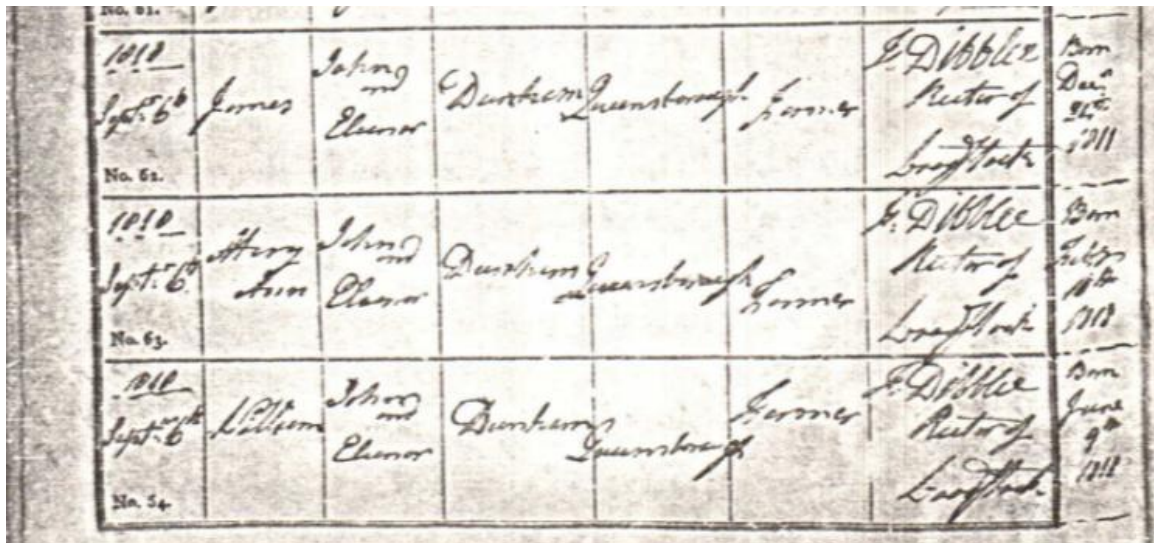 No. 61.
1818
Septr. 6th
James
John
and
Eleanor
Dunham
Queensborough
Farmer
F. Dibblee
Rector of
Woodstock
Born
1811
No. 62.
1818
Septr. 6th
Ann
John
and
Eleanor
Dunham
Queensborough
Farmer
F. Dibblee
Rector of
Woodstock
Born
1818
No. 63.
1818
Septr. 6th
William
John
and
Eleanor
Dunham
Queensborough
Farmer
F. Dibblee
Rector of
Woodstock
Born
June
9th
1818
No. 64.